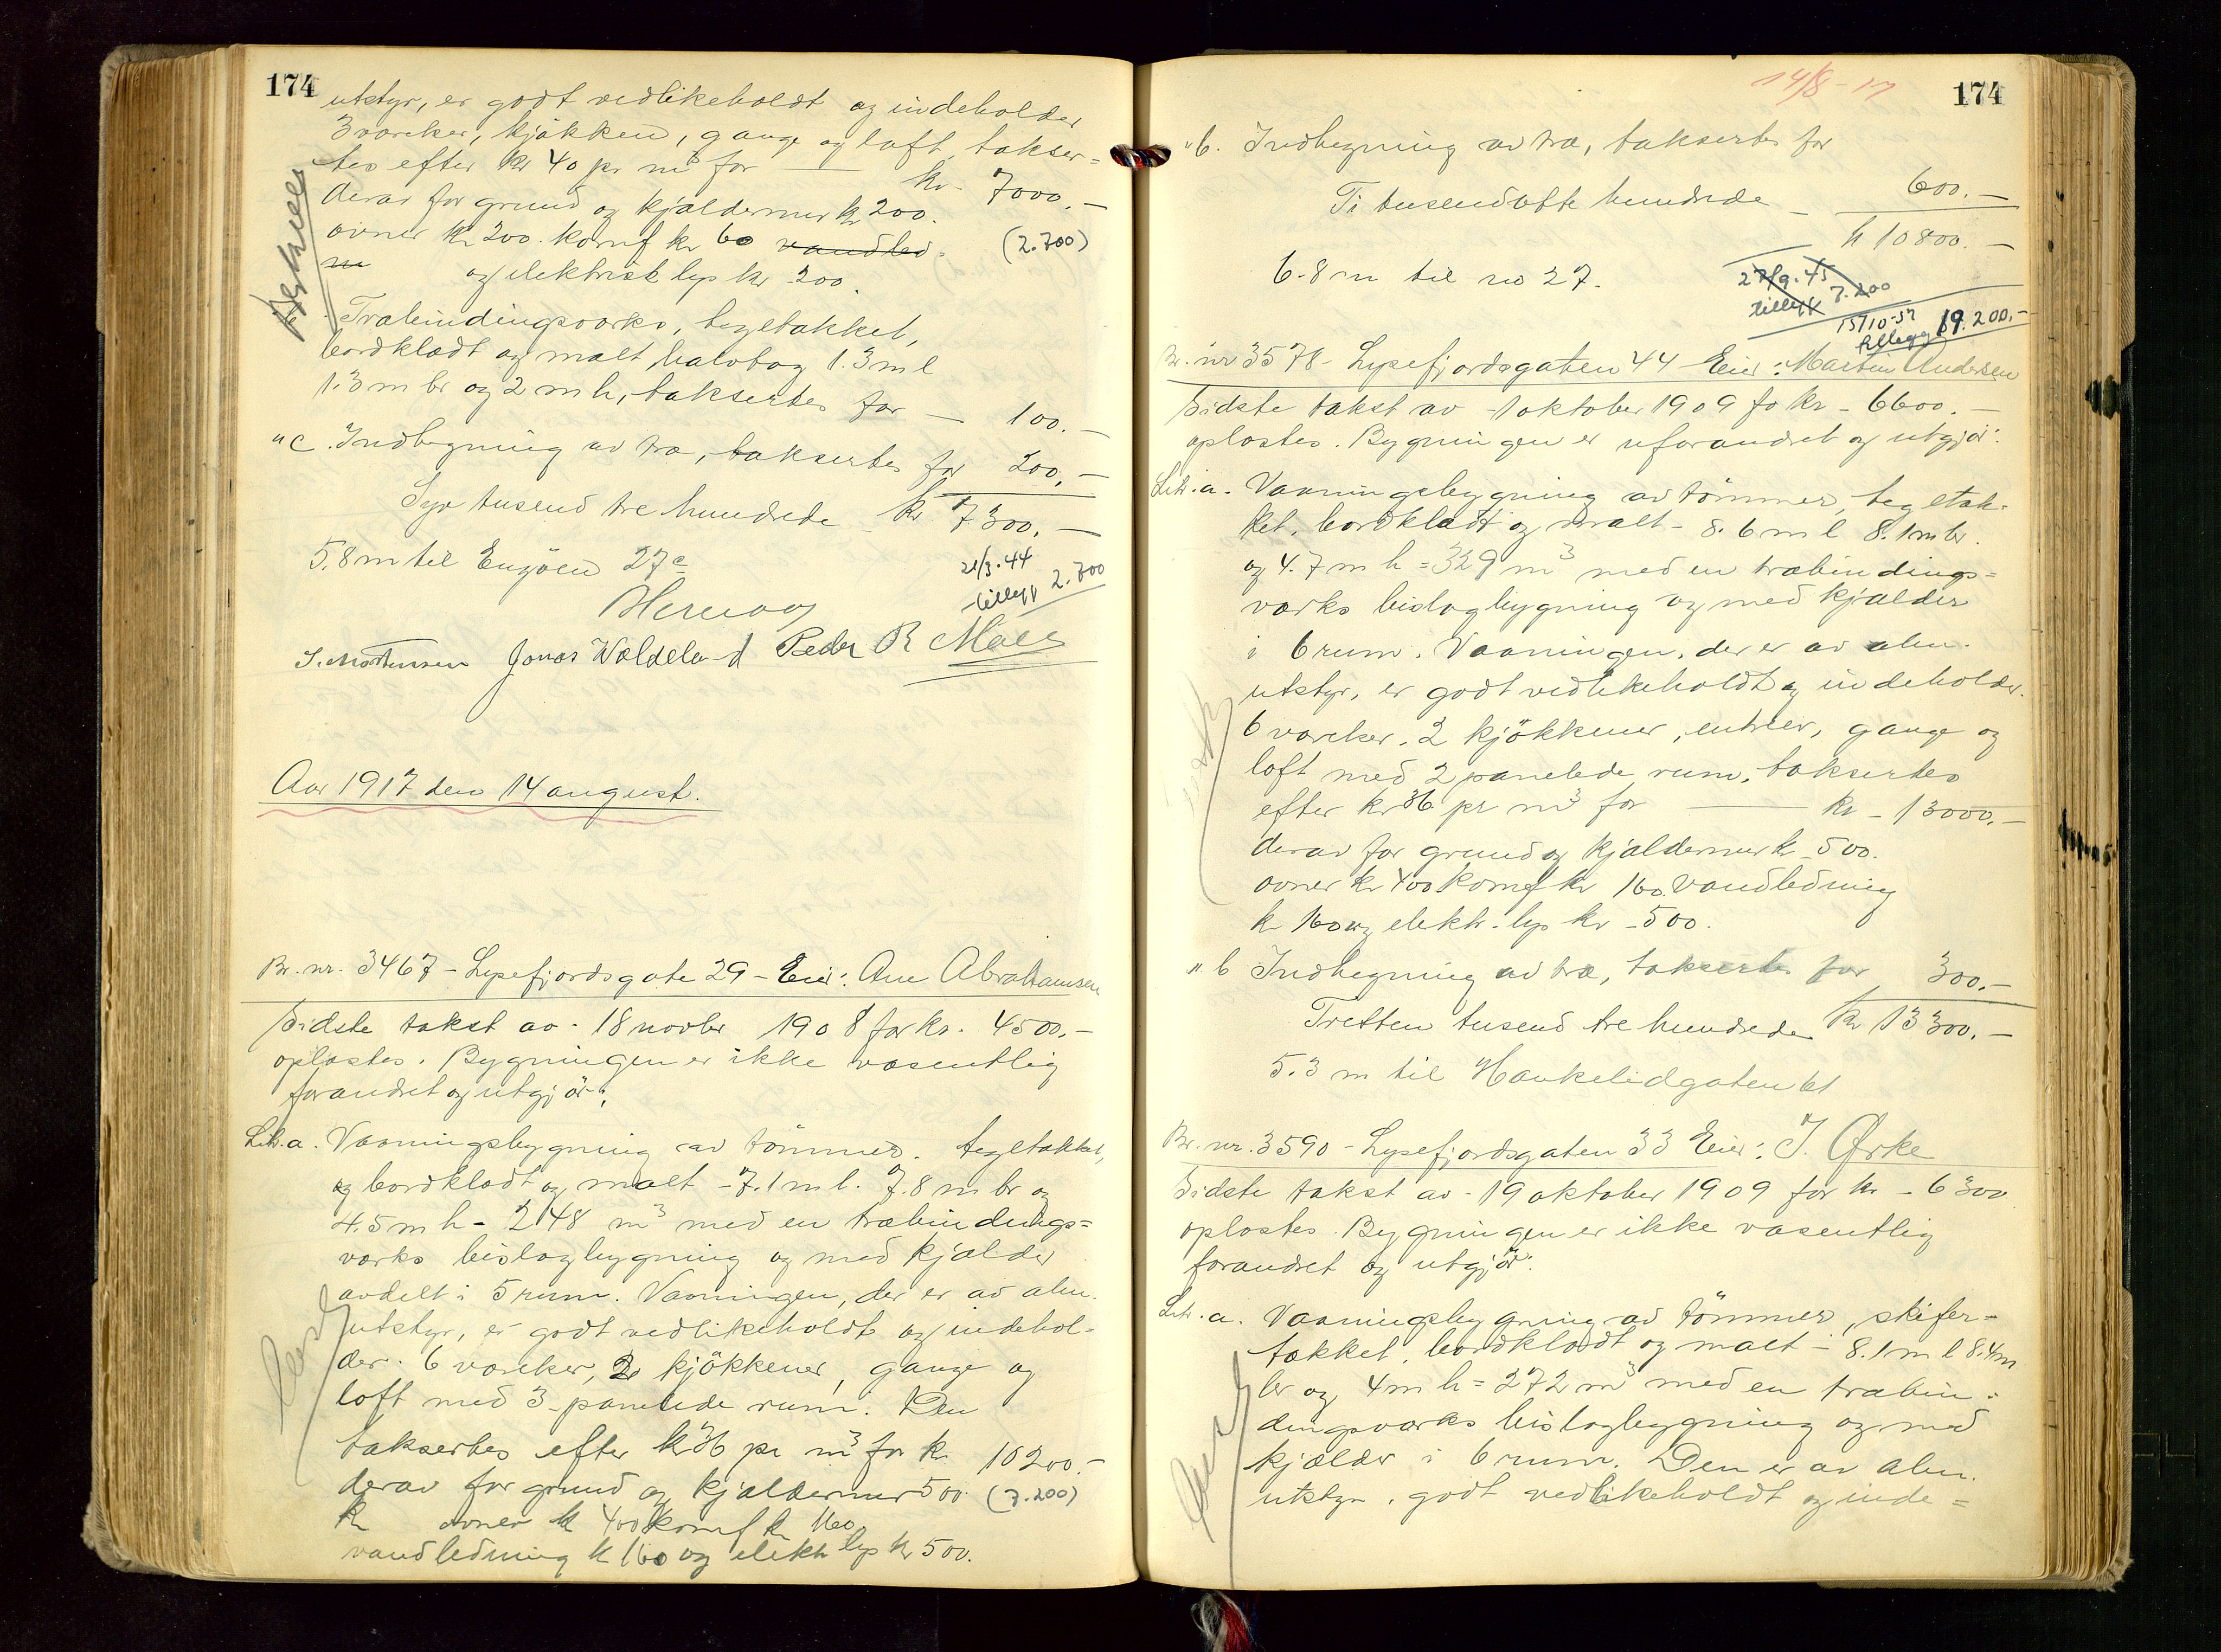 174
utstyr, er godt vedlikeholdt og indeholder
3 værelser, kjøkken, gange og loft, takser=
tes efter kr 40 pr m³ for — kr. 7000.—
derav for grund og kjældermur kr 200.
ovner kr 200. komf kr 60 vandled= (2.700)
og elektrisk lys kr 200.
Træbindingsværks, tegltækket,
bordklædt og malt halvtag 1.3 m l
1.3 m br og 2 m h, taksertes for — 100.—
" c. Indhegning av træ, taksertes for 200.—
Syv tusend tre hundrede kr 7300.—
5.8 m til Engøen 27c
21/3.44
tillegg 2.700
S. Mortensen Jonas Woldeland Peder R Mæle
Aar 1917 den 14 august.
Br. nr. 3467 - Lysefjordsgate 29 - Eier: Ane Abrahamsen
Sidste takst av - 18 novbr 1908 for kr. 4500.—
oplæstes. Bygningen er ikke væsentlig
forandret og utgjør:
Litr. a. Vaaningsbygning av tømmer, tegltækket,
og bordklædt og malt - 7.1 m l. 7.8 m br og
4.5 m h - 248 m³ med en træbindings=
værks bislagbygning og med kjælder
avdelt i 5 rum. Vaaningen, der er av alm.
utstyr, er godt vedlikeholdt og indehol-
der. 6 værelser, 2 kjøkkener, gange og
loft med 3 panelede rum. Den
taksertes efter kr 36 pr m³ for kr 10200.—
derav for grund og kjældermur 500. (7.200)
kr ovner kr 400 komf kr 160
vandledning kr 160 og elektr lys kr 500.
14/8-17
174
" b. Indhegning av træ, taksertes for
600.—
Ti tusend otte hundrede — kr 10800.—
6.8 m til no 27.
27/9.45
tillegg 7.200
15/10-57 19.200.—
tillegg
Br. nr 3578 - Lysefjordsgaten 44 Eier: Martin Andersen
Sidste takst av - 1 oktober 1909 fo kr - 6600.—
oplæstes. Bygningen er uforandret og utgjør:
Litr. a. Vaaningsbygning av tømmer, tegltæk-
ket, bordklædt og malt - 8.6 m l 8.1 m br.
og 4.7 m h = 329 m³ med en træbindings=
værks bislagbygning og med kjælder
i 6 rum. Vaaningen, der er av alm.
utstyr, er godt vedlikeholdt og indeholder.
6 værelser. 2 kjøkkener, entreer, gange og
loft med 2 panelede rum, taksertes
efter kr 36 pr m³ for — kr - 13000.—
derav for grund og kjældermur kr - 500.
ovner kr 400 komf kr 160. vandledning
kr 160 og elektr. lys kr - 500.
" b Indhegning av træ, taksertes for 300.—
Tretten tusend tre hundrede kr 13300.—
5.3 m til Haukelidgaten 61
Br. nr. 3590 - Lysefjordsgaten 33 Eier: J. Ørke
Sidste takst av - 19 oktober 1909 for kr - 6300
oplæstes. Bygningen er ikke væsentlig
forandret og utgjør:
Litr. a. Vaaningsbygning av tømmer, skifer-
tækket, bordklædt og malt - 8.1 m l 8.4 m
br og 4 m h = 272 m³ med en træbin-
dingsværks bislagbygning og med
kjælder i 6 rum. Den er av alm.
utstyr, godt vedlikeholdt og inde=